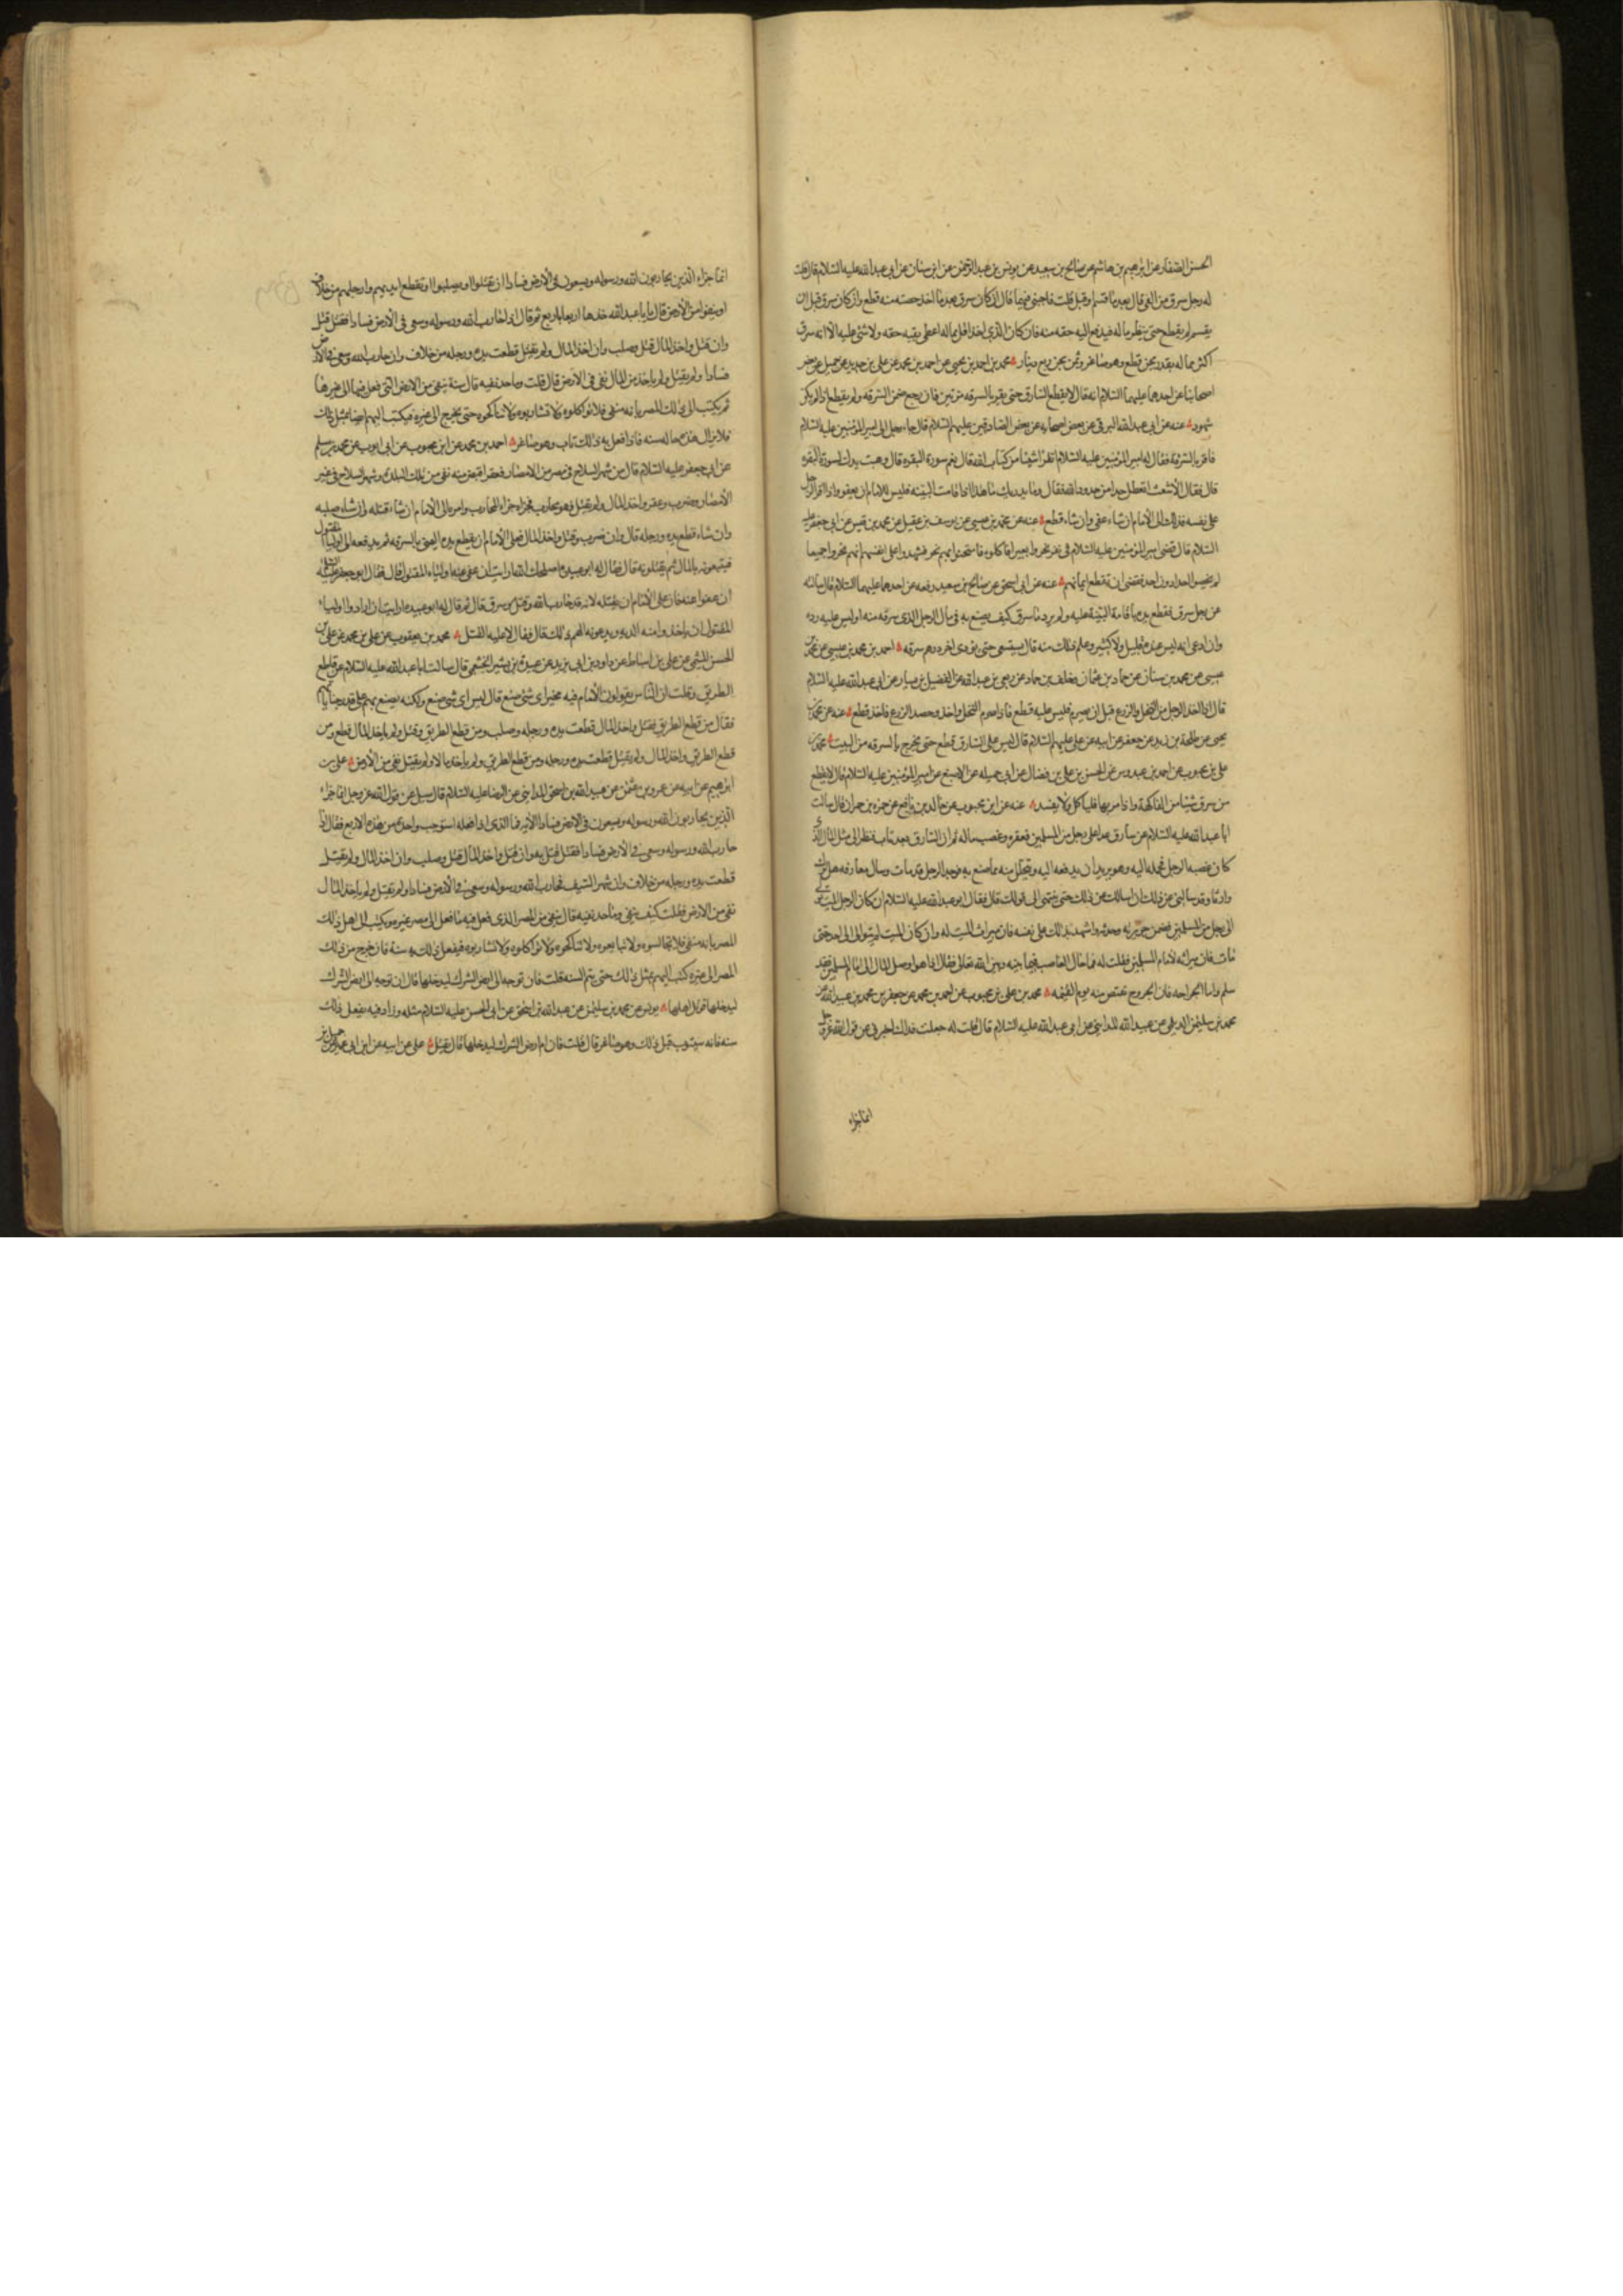 الحسن الصفار عن ابرهيم بن هاشم عن صالح بن سعيد عن يونس بن عبد الرحمن عن ابن سنان عن ابى عبد الله عليه السلام قال قلت
له رجل سرق من الفى قال بعد ما قسم او قبل قلت فاجبنى فيهما قال ان كان سرق بعد ما اخذ حصته منه قطع وان كان سرق قبل ان
يقسم لم يقطع حتى ينظر ما له فيه فيدفع اليه حقه منه فان كان الذى اخذ اقل مما له اعطى بقيه حقه ولا شئ عليه الا انه سرق
اكثر مما له بقدر مجن قطع وهو صاغر وثمن مجن ربع دينار محمد بن احمد بن يحيى عن احمد بن محمد عن على بن حديد عن جميل عن بعض
اصحابنا عن احدهما عليهما السلام انه قال لا يقطع السارق حتى يقر بالسرقه مرتين فان رجع ضمن السرقه ولم يقطع اذا لم يكن
شهود عنه عن ابى عبد الله البرقى عن بعض اصحابه عن بعض الصادقين عليهم السلام قال جاء رجل الى امير المؤمنين عليه السلام
فاقر بالسرقه فقال له امير المؤمنين عليه السلام اتقرا شيئا من كتاب الله قال نعم سورة البقره قال وهبت يدك لسورة البقره
قال فقال الاشعث اتعطل حدا من حدود الله فقال وما يدريك ما هذا اذا قامت البينه فليس للامام ان يعفو واذا اقر الرجل
على نفسه فذاك الى الامام ان شاء عفى وان شاء قطع عنه عن محمد بن عيسى عن يوسف بن عقيل عن محمد بن قيس عن ابى جعفر عليه
السلام قال قضى امير المؤمنين عليه السلام فى نفر نحروا بعيرا فاكلوه فامتحنوا ايهم نحر فشهدوا على انفسهم انهم نحروا جميعا
لم يخصوا احدا دون احد فقضى ان تقطع ايمانهم عنه عن ابى اسحق عن صالح بن سعيد رفعه عن احدهما عليهما السلام قال سالته
عن رجل سرق فقطع يده باقامة البينة عليه ولم يرد ما سرق كيف يصنع به فى مال الرجل الذى سرقه منه اوليس عليه رده
وان ادعى انه ليس عنده قليل ولا كثير وعلم ذلك منه قال يستسعى حتى يؤدى اخر درهم سرقه احمد بن محمد بن عيسى عن محمد بن
عيسى عن محمد بن سنان عن حماد بن عثمان وخلف بن حماد عن ربعى بن عبد الله عن الفضيل بن يسار عن ابى عبد الله عليه السلام
قال اذا اخذ الرجل من النخل والزرع قبل ان يصرم فليس عليه قطع فاذا صرم النخل واخذ وحصد الزرع فاخذ قطع عنه عن محمد بن
يحيى عن طلحة بن زيد عن جعفر عن ابيه عن على عليهم السلام قال ليس على السارق قطع حتى يخرج بالسرقه من البيت محمد بن
على بن محبوب عن احمد بن عبدوس عن الحسن بن على بن فضال عن ابى جميله عن الاصبغ عن امير المؤمنين عليه السلام قال لا يقطع
من سرق شيئا من الفاكهة واذا مر بها فلياكل ولا يفسد عنه عن ابن محبوب عن خالد بن نافع عن حمزه بن حمران قال سالت
ابا عبد الله عليه السلام عن سارق عدا على رجل من المسلمين فعقره وغصب ماله ثم ان السارق بعد تاب فنظر الى مثل المال الذى
كان غصبه الرجل فحمله اليه وهو يريد ان يدفعه اليه ويتحلل منه مما صنع به فوجد الرجل قد مات وسال معارفه هل ترك
وارثا وقد سالنى عن ذلك ان اسالك عن ذلك حتى ينتهى الى قولك قال فقال ابو عبد الله عليه السلام ان كان الرجل الميت توالى
الى رجل من المسلمين فضمن جريرته وحدثه واشهد بذلك على نفسه فان ميراث الميت له وان كان الميت لم يتوالى الى احد حتى
مات فان ميراثه لامام المسلمين فقلت له فما حال الغاصب فيما بينه وبين الله تعالى فقال اذا هو اوصل المال الى امام المسلمين فقد
سلم واما الجراحه فان الجروح تقتص منه يوم القيمه محمد بن على بن محبوب عن احمد بن محمد عن جعفر بن محمد بن عبيد الله عن
محمد بن سليمن الديلمى عن عبيد الله المداينى عن ابى عبد الله عليه السلام قال قلت له جعلت فداك اخبرنى عن قول الله عز وجل
انما جزاء
انما جزاء الذين يحاربون الله ورسوله ويسعون فى الارض فسادا ان يقتلوا او يصلبوا او تقطع ايديهم وارجلهم من خلاف
او ينفوا من الارض قال يا ابا عبد الله خذها اربعا باربع ثم قال اذا حارب الله ورسوله وسعى فى الارض فسادا فقتل قتل
وان قتل واخذ المال قتل وصلب وان اخذ المال ولم يقتل قطعت يده ورجله من خلاف وان حارب الله وسعى فى الارض
فسادا ولم يقتل ولم ياخذ من المال نفى فى الارض قال قلت وما حد نفيه قال سنة ينفى من الارض التى فعل فيها الى غيرها
ثم يكتب الى ذلك المصر بانه منفى فلا تؤاكلوه ولا تشاربوه ولا تناكحوه حتى يخرج الى غيره فيكتب اليهم ايضا بمثل ذلك
فلا يزال هذه حاله سنه فاذا فعل به ذلك تاب وهو صاغر احمد بن محمد عن ابن محبوب عن ابى ايوب عن محمد بن مسلم
عن ابى جعفر عليه السلام قال من شهر السلاح فى مصر من الامصار فعقر اقتص منه نفى من تلك البلدة ومن شهر السلاح فى غير
الامصار وضرب وعقر واخذ المال ولم يقتل فهو محارب فجزاؤه جزاء المحارب وامره الى الامام ان شاء قتله وان شاء صلبه
وان شاء قطع يده ورجله قال وان ضرب وقتل واخذ المال فعلى الامام ان يقطع يده اليمنى بالسرقه ثم يدفعه الى اولياء المقتول
فيتبعونه بالمال ثم يقتلونه قال فقال له ابو عبيده اصلحك الله ارايت ان عفى عنه اولياء المقتول قال فقال ابو جعفر عليه السلام
ان عفوا عنه فان على الامام ان يقتله لانه قد حارب الله وقتل وسرق قال ثم قال له ابو عبيده ارايت ان ارادوا اولياء
المقتول ان ياخذوا منه الدية ويدعونه الهم ذلك قال فقال لا عليه القتل محمد بن يعقوب عن على بن محمد عن على بن
الحسن الميثمى عن على بن اسباط عن داود بن ابى يزيد عن عبيدة بن بشير الخثعمى قال سالت ابا عبد الله عليه السلام عن قاطع
الطريق وقلت ان الناس يقولون الامام فيه مخير اى شئ صنع قال ليس اى شئ صنع ولكنه يصنع بهم على قدر جناياتهم
فقال من قطع الطريق فقتل واخذ المال قطعت يده ورجله وصلب ومن قطع الطريق وقتل ولم ياخذ المال قطع ومن
قطع الطريق واخذ المال ولم يقتل قطعت يده ورجله ومن قطع الطريق ولم ياخذ مالا ولم يقتل نفى من الارض على بن
ابرهيم عن ابيه عن عمرو بن عثمن عن عبيد الله بن اسحق المداينى عن الرضا عليه السلام قال سئل عن قول الله عز وجل انما جزاء
الذين يحاربون الله ورسوله ويسعون فى الارض فسادا الايه فما الذى اذا فعله استوجب واحدة من هذه الاربع فقال اذا
حارب الله ورسوله وسعى فى الارض فسادا فقتل قتل به وان قتل واخذ المال قتل وصلب وان اخذ المال ولم يقتل
قطعت يده ورجله من خلاف وان شهر السيف فحارب الله ورسوله وسعى فى الارض فسادا ولم يقتل ولم ياخذ المال
نفى من الارض فقلت كيف ينفى وما حد نفيه قال ينفى من المصر الذى فعل فيه ما فعل الى مصر غيره ويكتب الى اهل ذلك
المصر بانه منفى فلا تجالسوه ولا تبايعوه ولا تناكحوه ولا تواكلوه ولا تشاربوه فيفعل ذلك به سنة فان خرج من ذلك
المصر الى غيره كتب اليهم بمثل ذلك حتى يتم السنه قلت فان توجه الى ارض الشرك ليدخلها قال ان توجه الى ارض الشرك
ليدخلها قوتل اهلها يونس عن محمد بن سليمن عن عبد الله بن اسحق عن ابى الحسن عليه السلام مثله وزاد فيه يفعل ذلك
سنه فانه سيتوب قبل ذلك وهو صاغر قال قلت فان ام ارض الشرك ليدخلها قال يقتل على عن ابيه عن ابن ابى عمير عن جميل بن